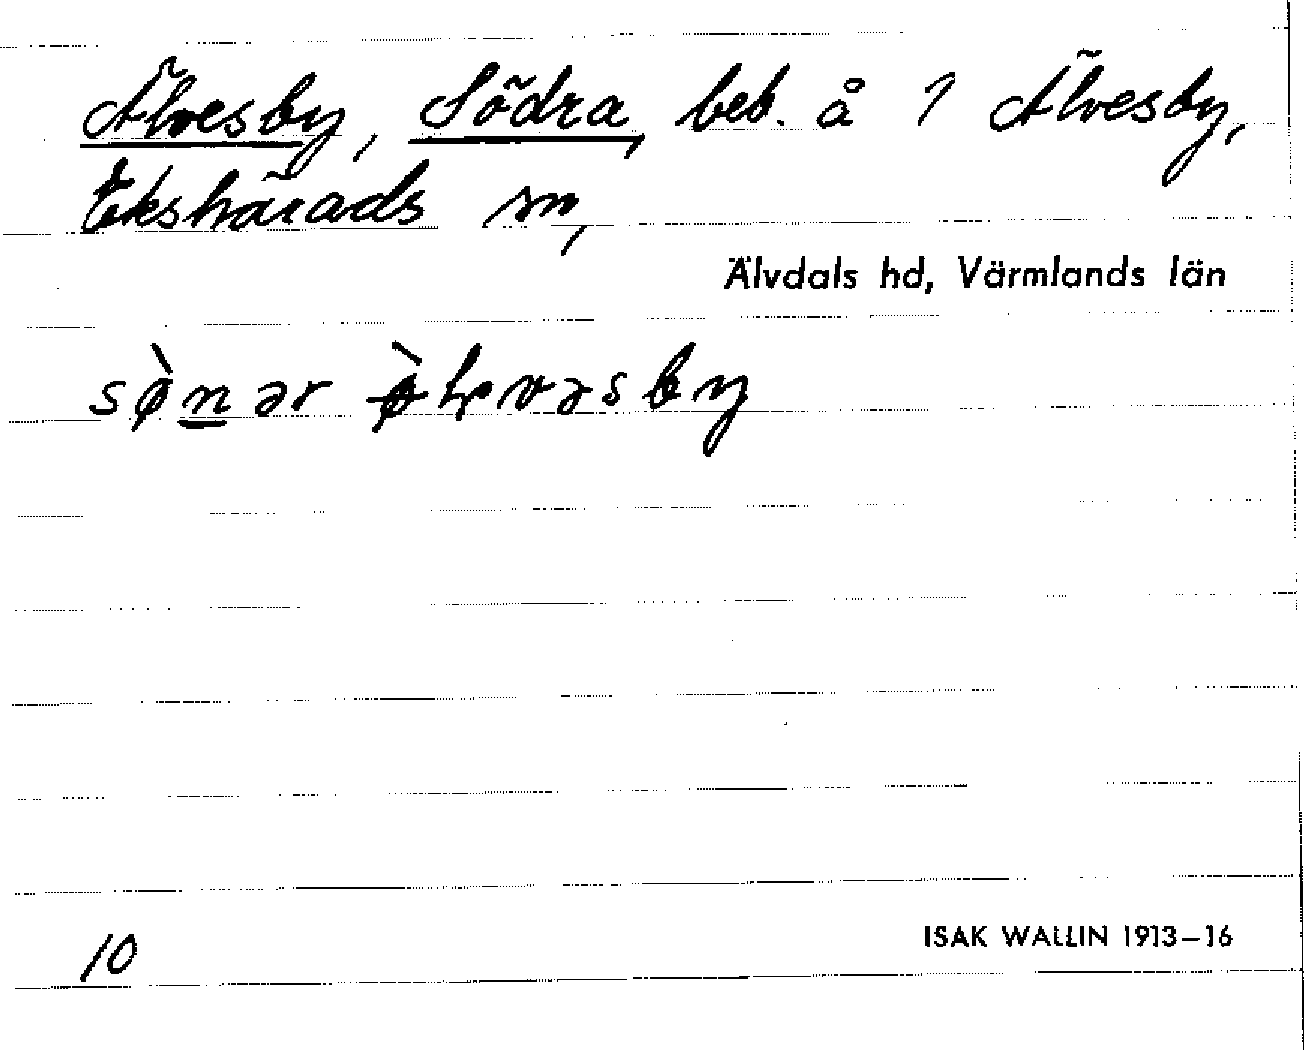 Älvesby, Södra, beb. å 1 Älvesby,
Ekshärads sn,
Älvdals hd, Värmlands län
sø̀n̲ər
10
ISAK WALLIN 1913–16